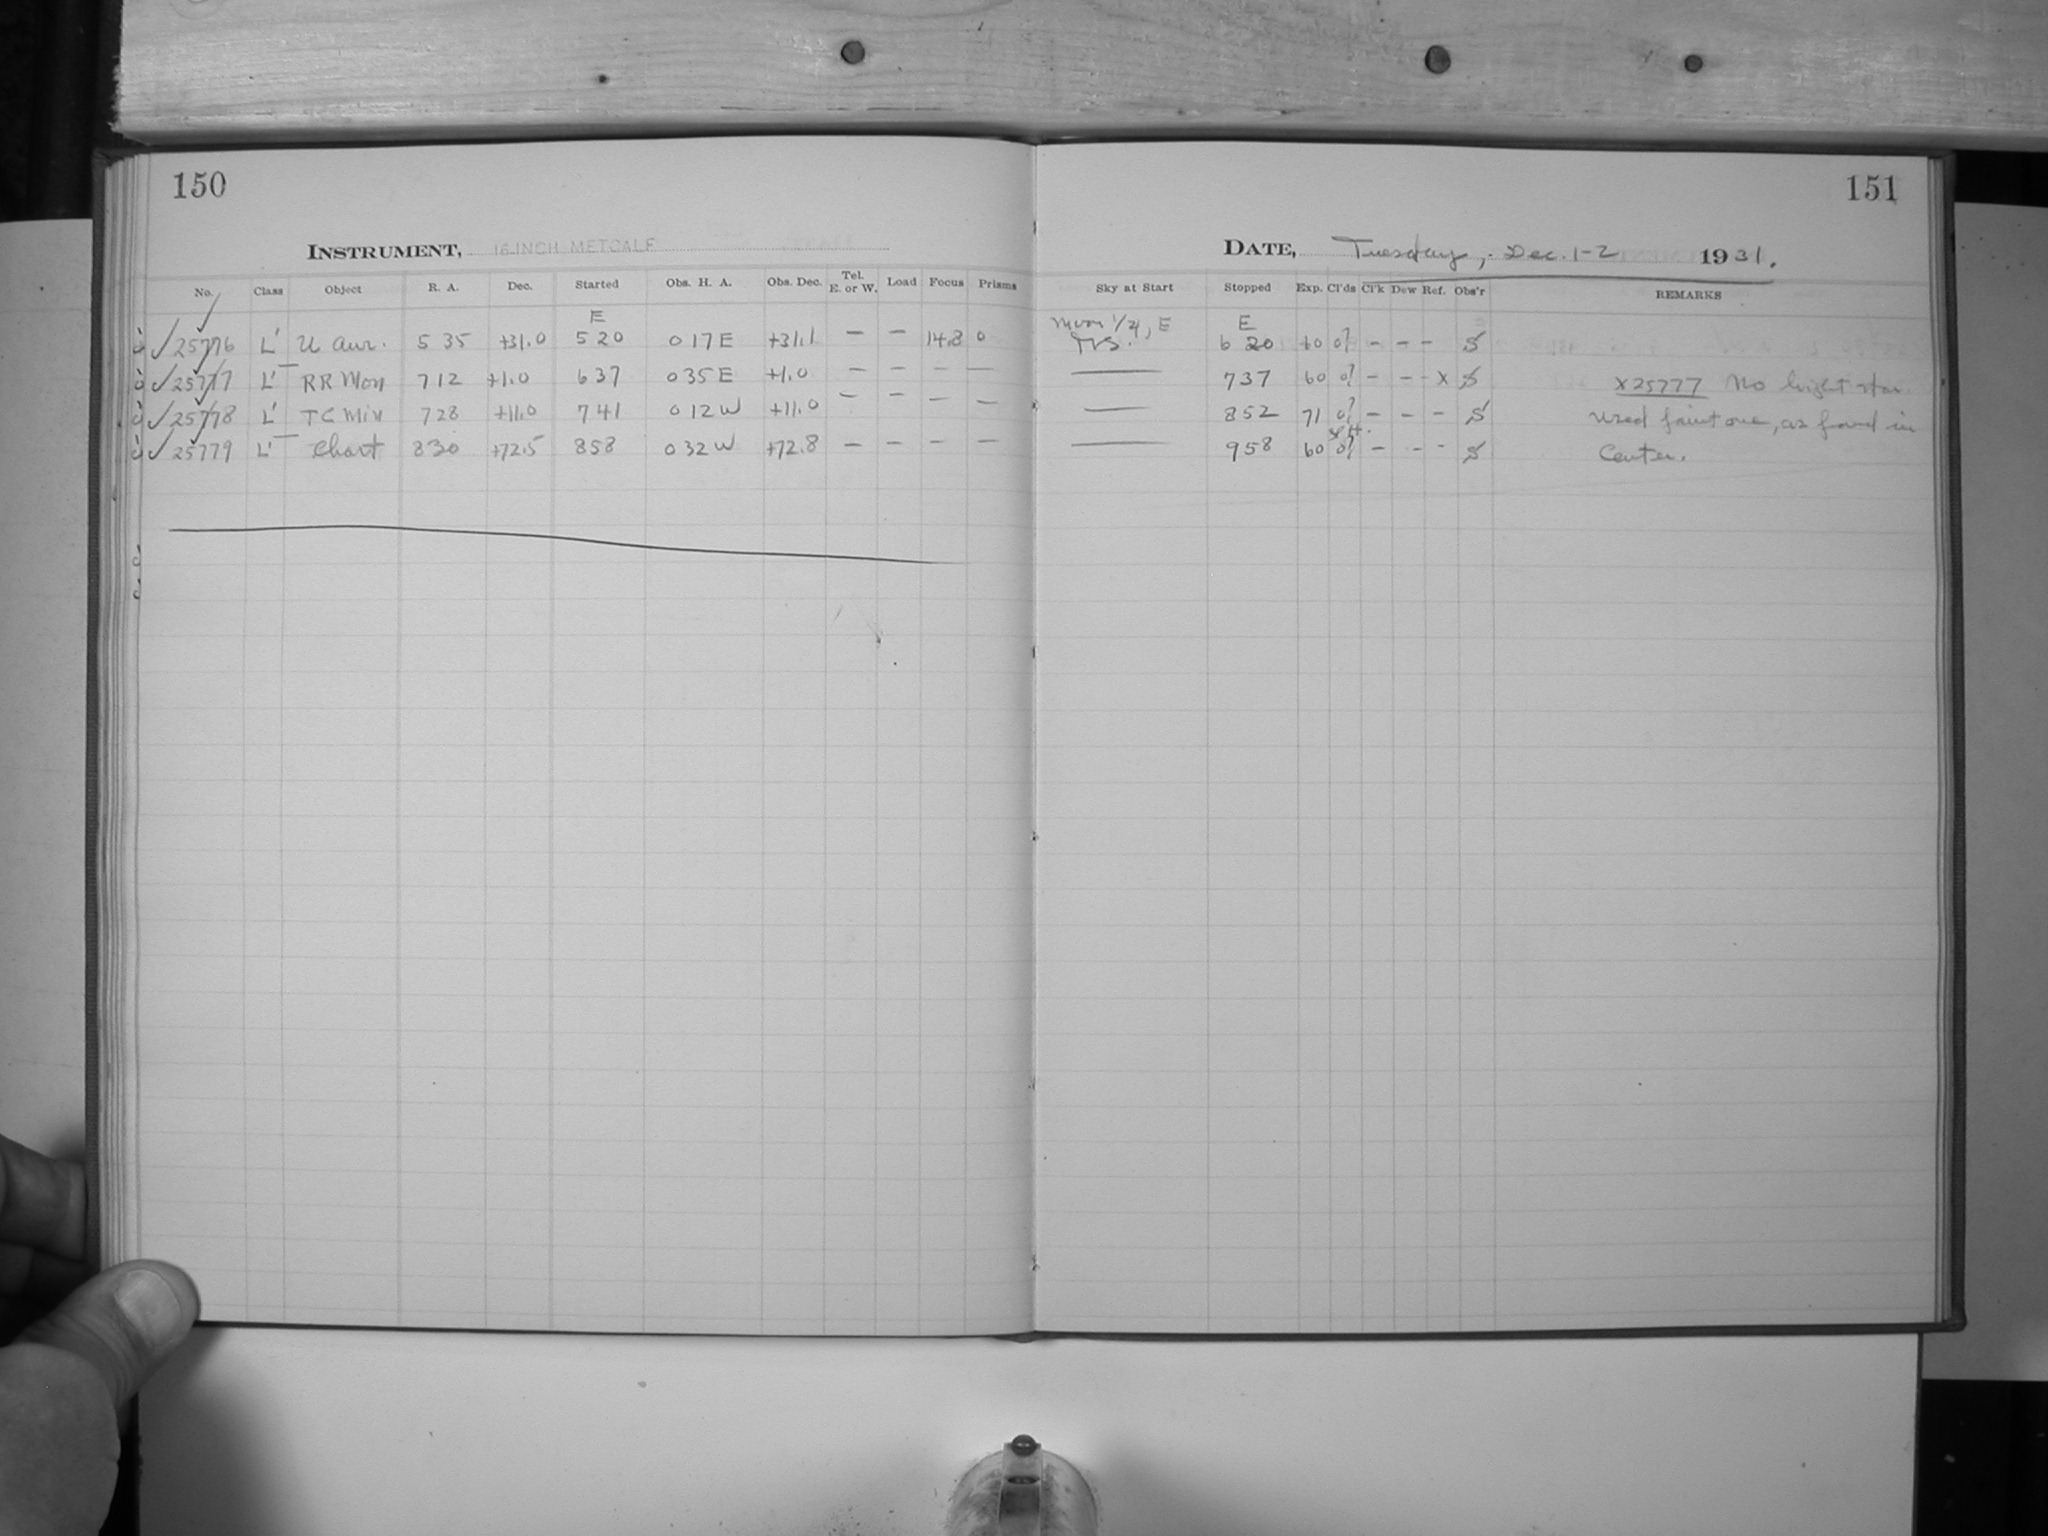 150
151
INSTRUMENT, 16-INCH METCALF
DATE, Tuesday, Dec. 1-2 1931.
No. Class Object R. A. Dec. Started Obs. H. A. Obs. Dec. Tel. E. or W. Load Focus Prisms Sky at Start Stopped Exp. Cl'ds Cl'k Dew Ref. Obs'r REMARKS
E Moon 1/4, E E
✓ 25776 L' U Aur. 5 35 +31.0 5 20 0 17 E +31.1 — — 14.8 0 6 20 60 0? - - - S
✓ 25777 L' RR Mon 7 12 +1.0 6 37 0 35 E +1.0 — — — — —— 7 37 60 0? - - - X S X 25777 No bright star
✓ 25778 L' T C Min 7 28 +11.0 7 41 0 12 W +11.0 — — — — —— 8 52 71 0? - - - S used faint one, as found in
✓ 25779 L' Chart 8 30 +72.5 8 58 0 32 W +72.8 — — — — —— 9 58 60 0? - - - S Center.